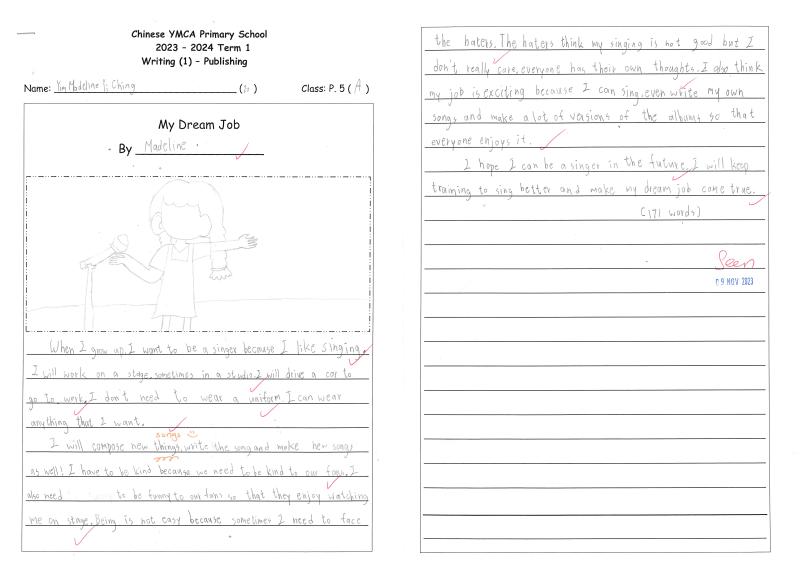 Chinese YMCA Primary School
2023 – 2024 Term 1
Writing (1) – Publishing
Name: Yim Madeline Yi Ching ( ) Class: P. 5 ( A )
My Dream Job
By Madeline
When I grow up, I want to be a singer because I like singing.
I will work on a stage, sometimes in a studio. I will drive a car to
go to work. I don't need to wear a uniform. I can wear
anything that I want.
songs
I will compose new things, write the song and make new song
as well! I have to be kind because we need to be kind to our fans. I
also need to be funny to our fans so that they enjoy watching
me on stage. Being is not easy because sometimes I need to face
the haters. The haters think my singing is not good but I
don't really care, everyone has their own thoughts. I also think
my job is exciting because I can sing, even write my own
songs and make a lot of versions of the albums so that
everyone enjoys it.
I hope I can be a singer in the future. I will keep
training to sing better and make my dream job come true.
(171 words)
Seen
09 NOV 2023